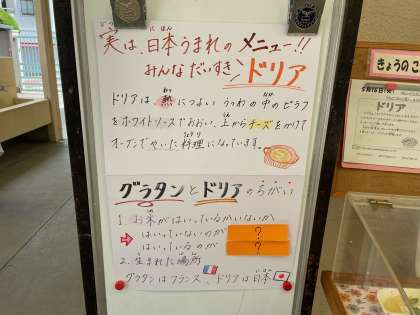 実は、日本うまれの メニュー!!
みんなだいすき
ドリア
ドリアは 熱につよい うつわの中の ピラフ
をホワイトソースでおおい、上から チーズ をかけて
オーブンでやいた 料理 になっています。
グラタン と ドリア の ちがい
1. お米がはいっているかいないか
はいっていないのが ?
はいっているのが ?
2. 生まれた場所
グラタンはフランス、ドリアは日本
きょうのこ
ドリア